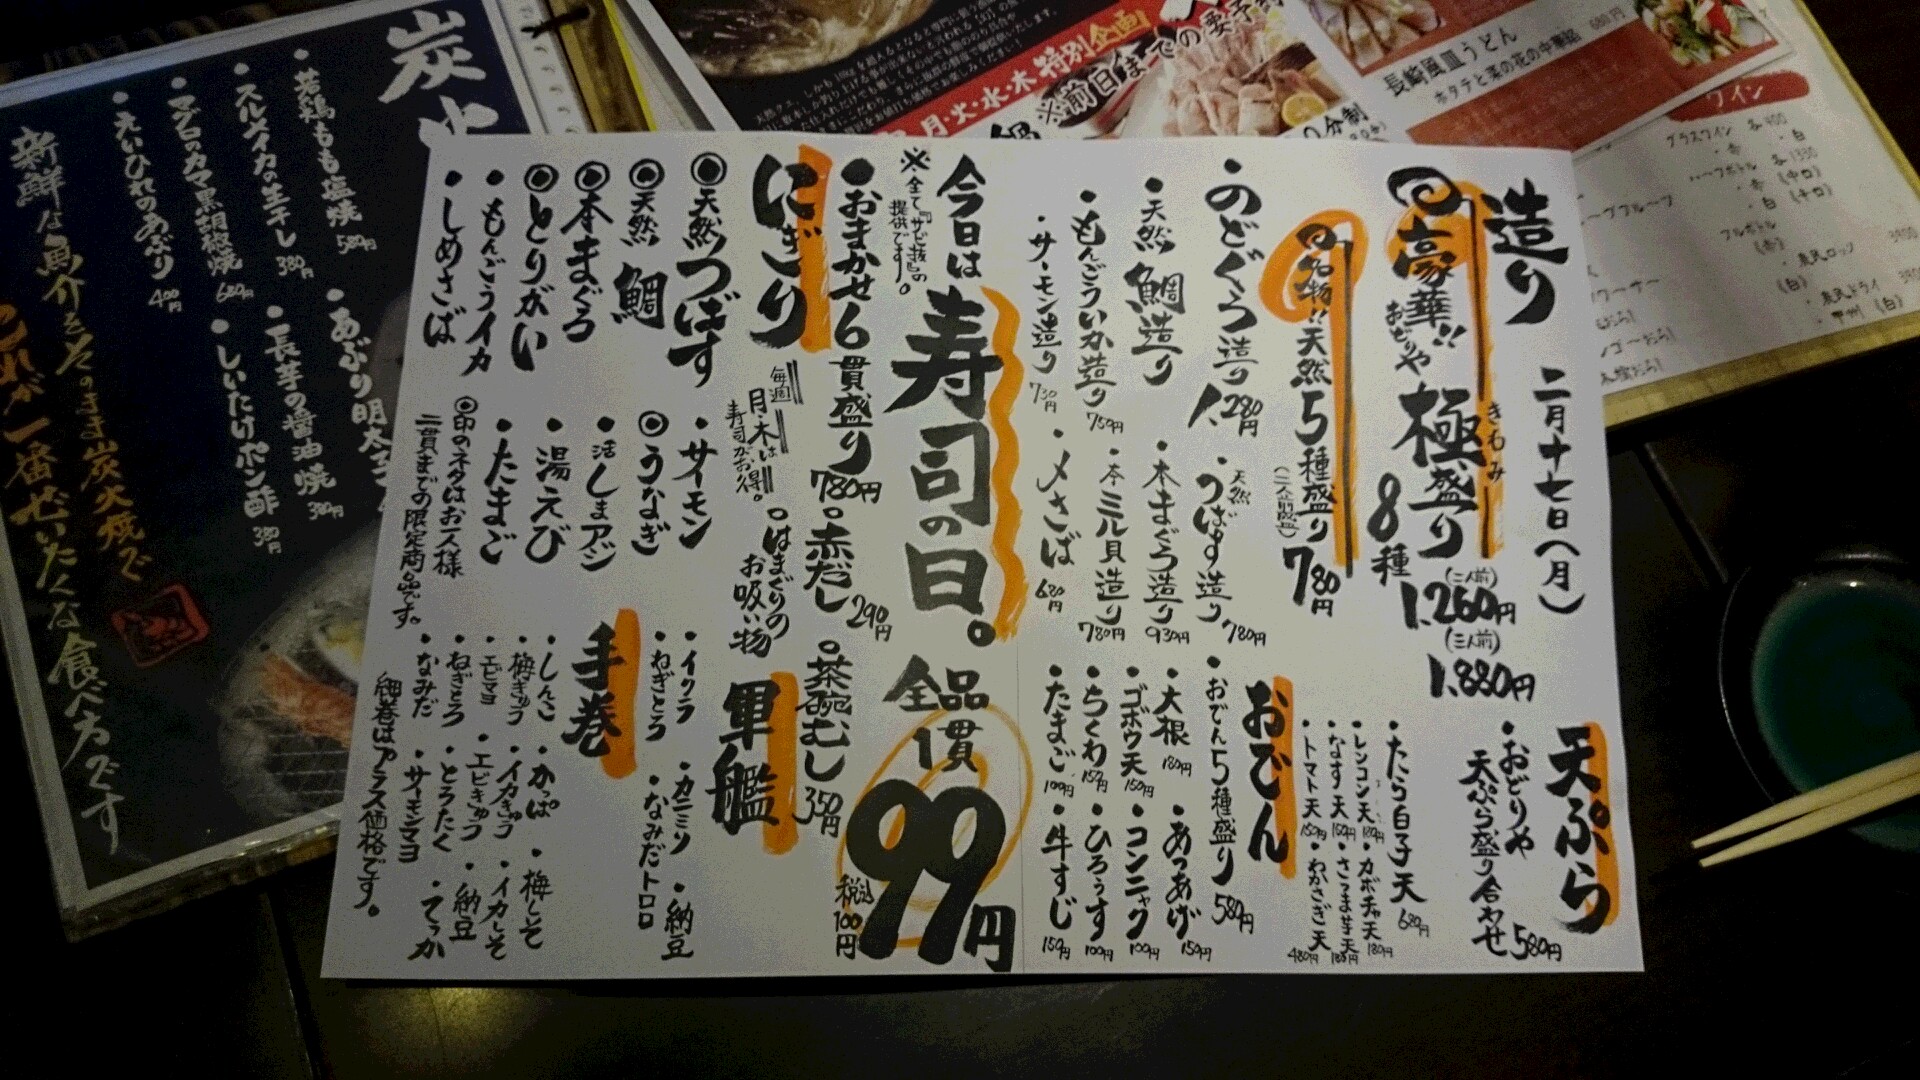 造り
二月十七日（月）
豪華!!
おどりや
極盛り
きわみ
8種
(二人前)
1.260円
(三人前)
1.880円
名物!!天然5種盛り
(二人前盛)
780円
・のどぐろ造り 1.280円
・天然つばす造り 780円
・天然鯛造り
・本まぐろ造り 930円
・もんごういか造り 750円
・本ミル貝造り 780円
・サーモン造り 730円
・〆さば 680円
天ぷら
・おどりや
天ぷら盛り合わせ 580円
・たら白子天 680円
・レンコン天 180円
・カボチャ天 180円
・なす天 150円
・さつま芋天 180円
・トマト天 150円
・わかさぎ天 480円
おでん
・おでん5種盛り 580円
・大根 180円
・あつあげ 150円
・ゴボウ天 150円
・コンニャク 100円
・ちくわ 150円
・ひろうす 100円
・たまご 100円
・牛すじ 150円
今日は
寿司の日。
全品
1貫
99円
税込
100円
※全て『サビ抜』の
提供です。
・おまかせ6貫盛り 780円
○赤だし 290円
○茶碗むし 350円
○はまぐりの
お吸い物
にぎり
毎週
月・木は
寿司がお得。
◎天然つばす
◎天然鯛
◎本まぐろ
◎とりがい
・もんごうイカ
・しめさば
・サーモン
◎うなぎ
・活しまアジ
・湯えび
・たまご
◎印のネタはお一人様
二貫までの限定商品です。
軍艦
・イクラ
・カニミソ
・納豆
・ねぎとろ
・なみだトロロ
手巻
・しんこ
・かっぱ
・梅しそ
・梅きゅう
・イカきゅう
・イカしそ
・エビマヨ
・エビきゅう
・納豆
・ねぎとろ
・とろたく
・てっか
・なみだ
・サーモンマヨ
細巻はプラス価格です。
炭火
・若鶏もも塩焼 580円
・スルメイカの生干し 380円
・マグロのカマ黒胡椒焼 680円
・えいひれのあぶり 400円
・あぶり明太
・長芋の醤油焼 380円
・しいたけポン酢 380円
新鮮な魚介をそのまま炭火焼で
これが一番ぜいたくな食べ方です
月・火・水・木 特別企画
※前日までの要予約
長崎風皿うどん
680円
ホタテと菜の花の中華餡
ワイン
グラスワイン 各400
・赤 ・白
ハーフボトル 各1330
・赤 (中口)
・白 (辛口)
フルボトル
(赤)
・農民ロッソ
(白)
・農民ドライ
・甲州 (白)